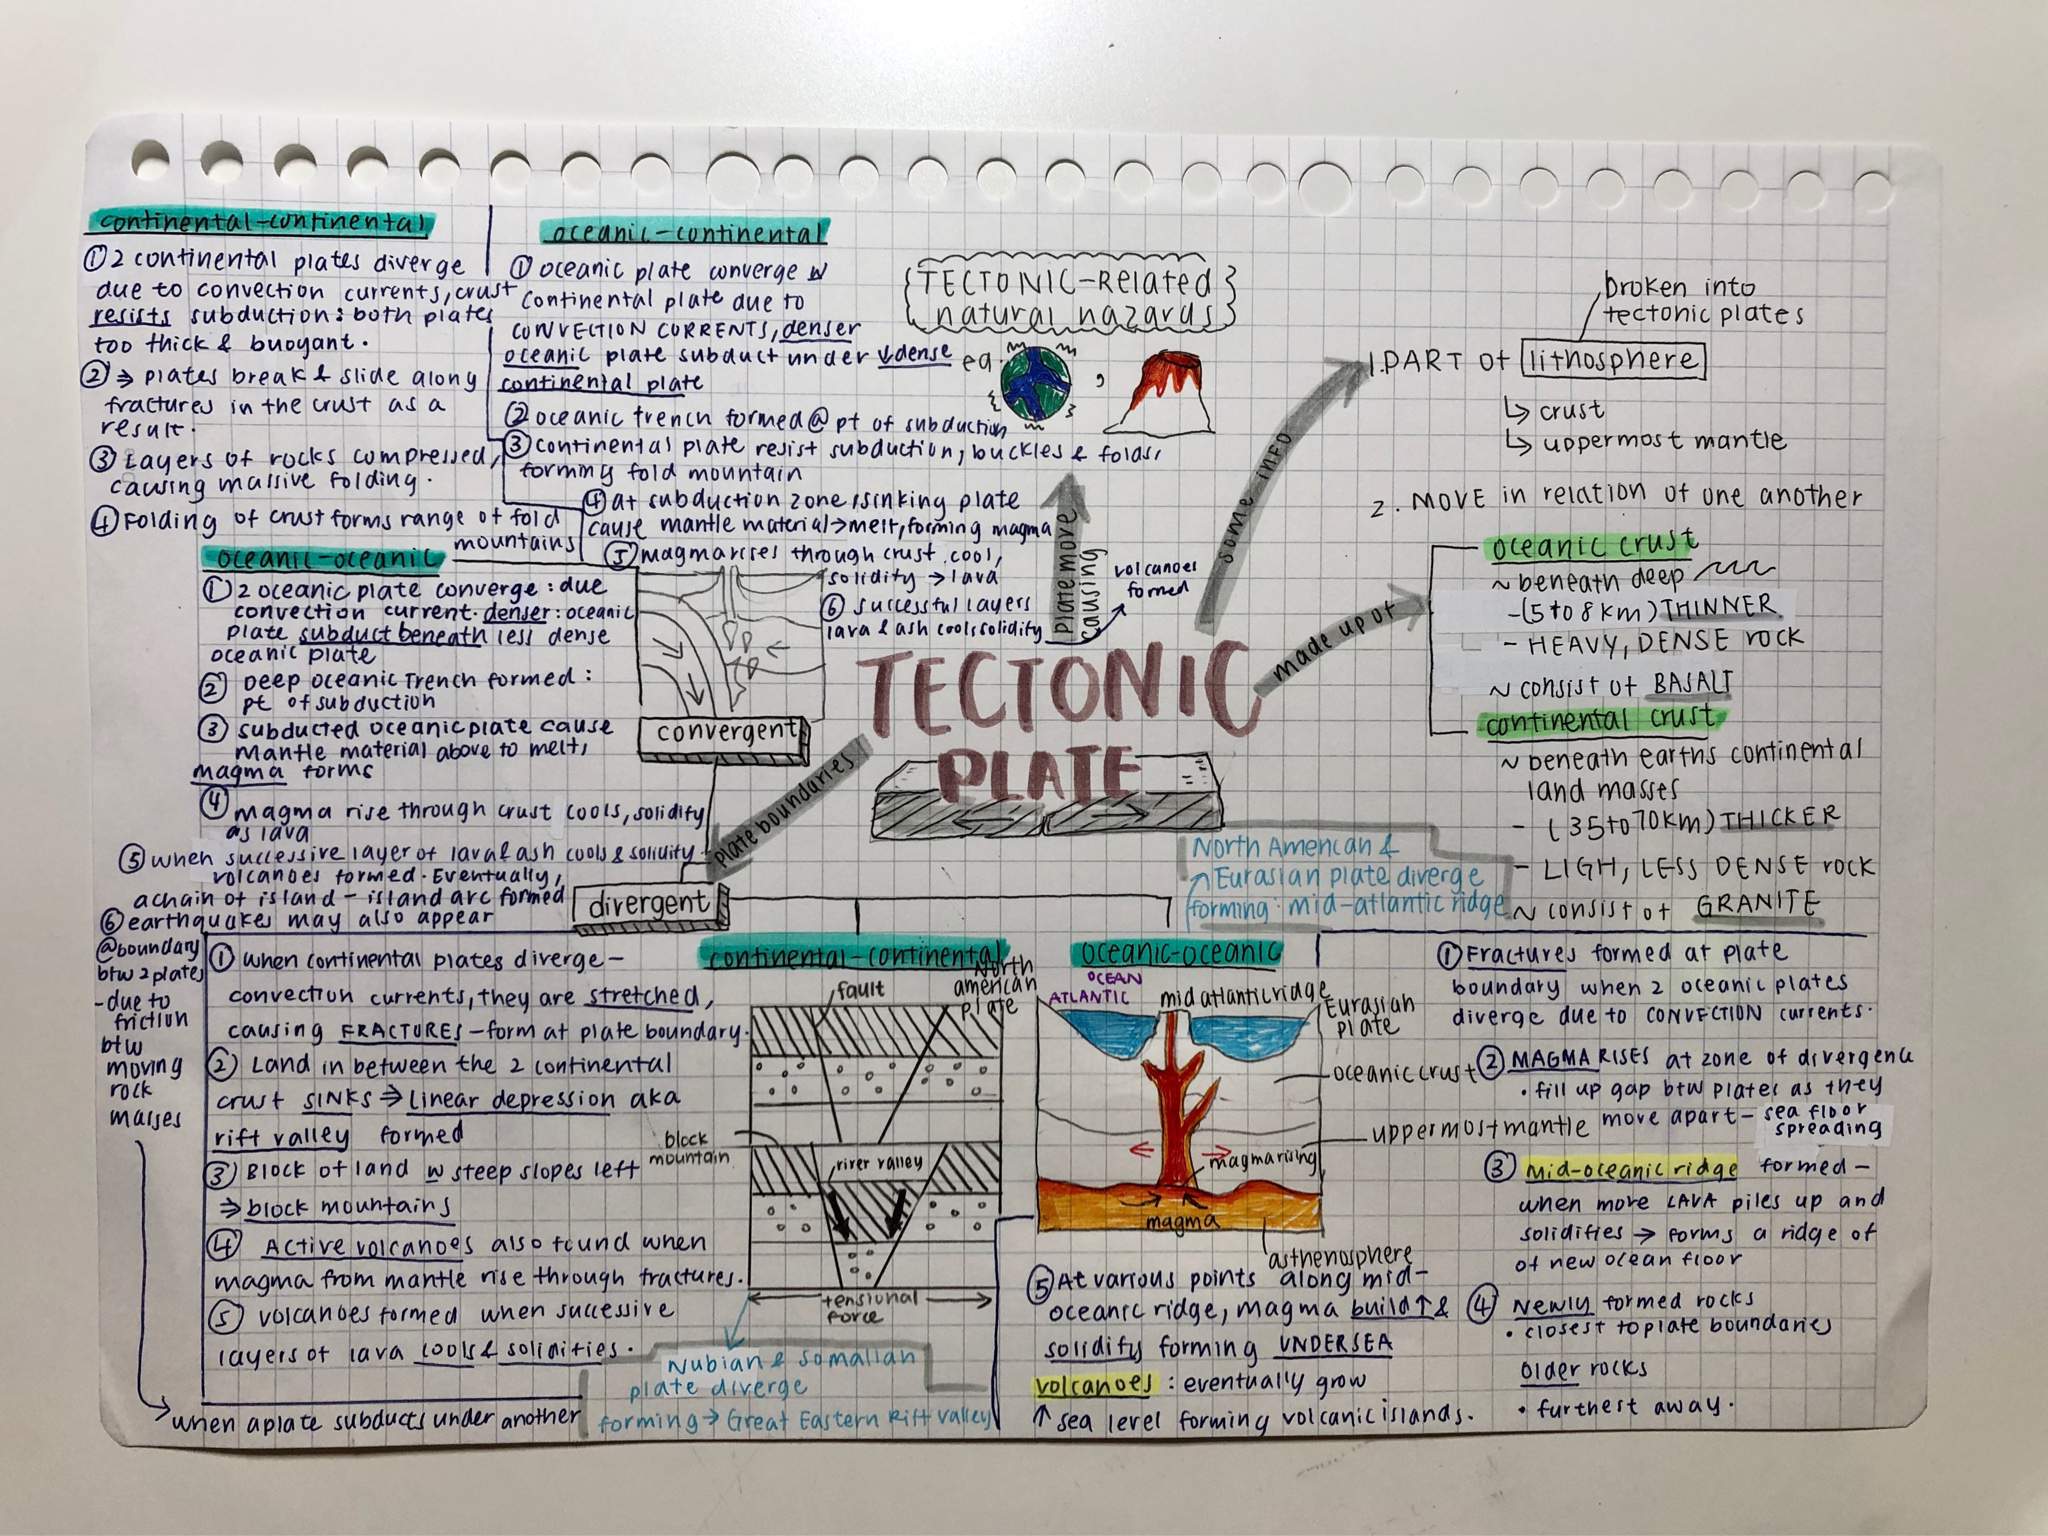 continental-continental
① 2 continental plates diverge
due to convection currents, crust
resists subduction: both plates
too thick & buoyant.
② ⇒ plates break & slide along
fractures in the crust as a
result.
③ Layers of rocks compressed,
causing massive folding.
④ Folding of crust forms range of fold
mountains
oceanic-continental
① oceanic plate converge w
continental plate due to
CONVECTION CURRENTS, denser
oceanic plate subduct under ↓dense
continental plate
② oceanic trench formed @ pt of subduction
③ continental plate resist subduction, buckles & folds,
forming fold mountain
④ at subduction zone, sinking plate
cause mantle material → melt, forming magma
⑤ magma rises through crust, cool,
solidity → lava
⑥ successful layers
lava & ash cools solidity
oceanic-oceanic
① 2 oceanic plate converge: due
convection current. denser: oceanic
plate subduct beneath less dense
oceanic plate
② Deep oceanic Trench formed:
pt of subduction
③ subducted oceanic plate cause
mantle material above to melt,
magma forms
④ magma rise through crust cools, solidity
as lava
⑤ when successive layer of lava & ash cools & solidity -
volcanoes formed. Eventually,
a chain of island - island arc formed
⑥ earthquakes may also appear
@boundary
btw 2 plates
- due to
friction
btw
moving
rock
masses
when a plate subducts under another
TECTONIC-Related
natural hazards
eg.
,
plate move
causing
volcanoes
formed
some info
made up of
plate boundaries
TECTONIC
PLATE
convergent
divergent
broken into
tectonic plates
1. PART of lithosphere
↳ crust
↳ uppermost mantle
2. MOVE in relation of one another
oceanic crust
~ beneath deep
- (5 to 8 km) THINNER
- HEAVY, DENSE rock
~ consist of BASALT
continental crust
~ beneath earths continental
land masses
- (35 to 70km) THICKER
- LIGH, LESS DENSE rock
~ consist of GRANITE
North American &
Eurasian plate diverge
forming: mid-atlantic ridge
continental-continental
① when continental plates diverge -
convection currents, they are stretched,
causing FRACTURES - form at plate boundary.
② Land in between the 2 continental
crust SINKS ⇒ Linear depression aka
rift valley formed
③ Block of land w steep slopes left
⇒ block mountains
④ Active volcanoes also found when
magma from mantle rise through fractures.
⑤ volcanoes formed when successive
layers of lava cools & solidities.
fault
block
mountain
river valley
tensional
force
Nubian & somalian
plate diverge
forming → Great Eastern Rift valley
oceanic-oceanic
North
american
plate
OCEAN
ATLANTIC
mid atlantic ridge
Eurasian
plate
oceanic crust
uppermost mantle
magma rising
magma
asthenosphere
① Fractures formed at plate
boundary when 2 oceanic plates
diverge due to CONVECTION currents.
② MAGMA RISES at zone of divergence
• fill up gap btw plates as they
move apart - sea floor
spreading
③ mid-oceanic ridge formed -
when more LAVA piles up and
solidifies → forms a ridge of
of new ocean floor
④ Newly formed rocks
• closest to plate boundaries
Older rocks
• furthest away.
⑤ At various points along mid-
oceanic ridge, magma build↑ &
solidify forming UNDERSEA
volcanoes: eventually grow
↑ sea level forming volcanic islands.